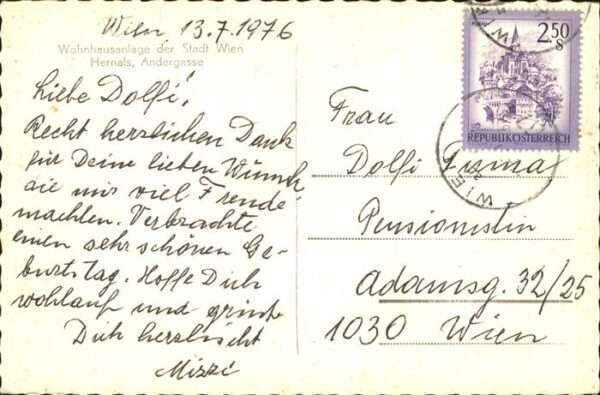 Wien, 13.7.1976
Wohnhausanlage der Stadt Wien
Hernals, Andergasse
Liebe Dolfi!
Recht herzlichen Dank
für Deine lieben Wünsch
die mir viel Freude
machten. Verbrachte
einen sehr schönen Ge-
burtstag. Hoffe Dich
wohlauf und grüße
Dich herzlichst
Mizzi
2.50
S
REPUBLIK ÖSTERREICH
WIEN
Frau
Dolfi
Pensionistin
Adamsg. 32/25
1030 Wien